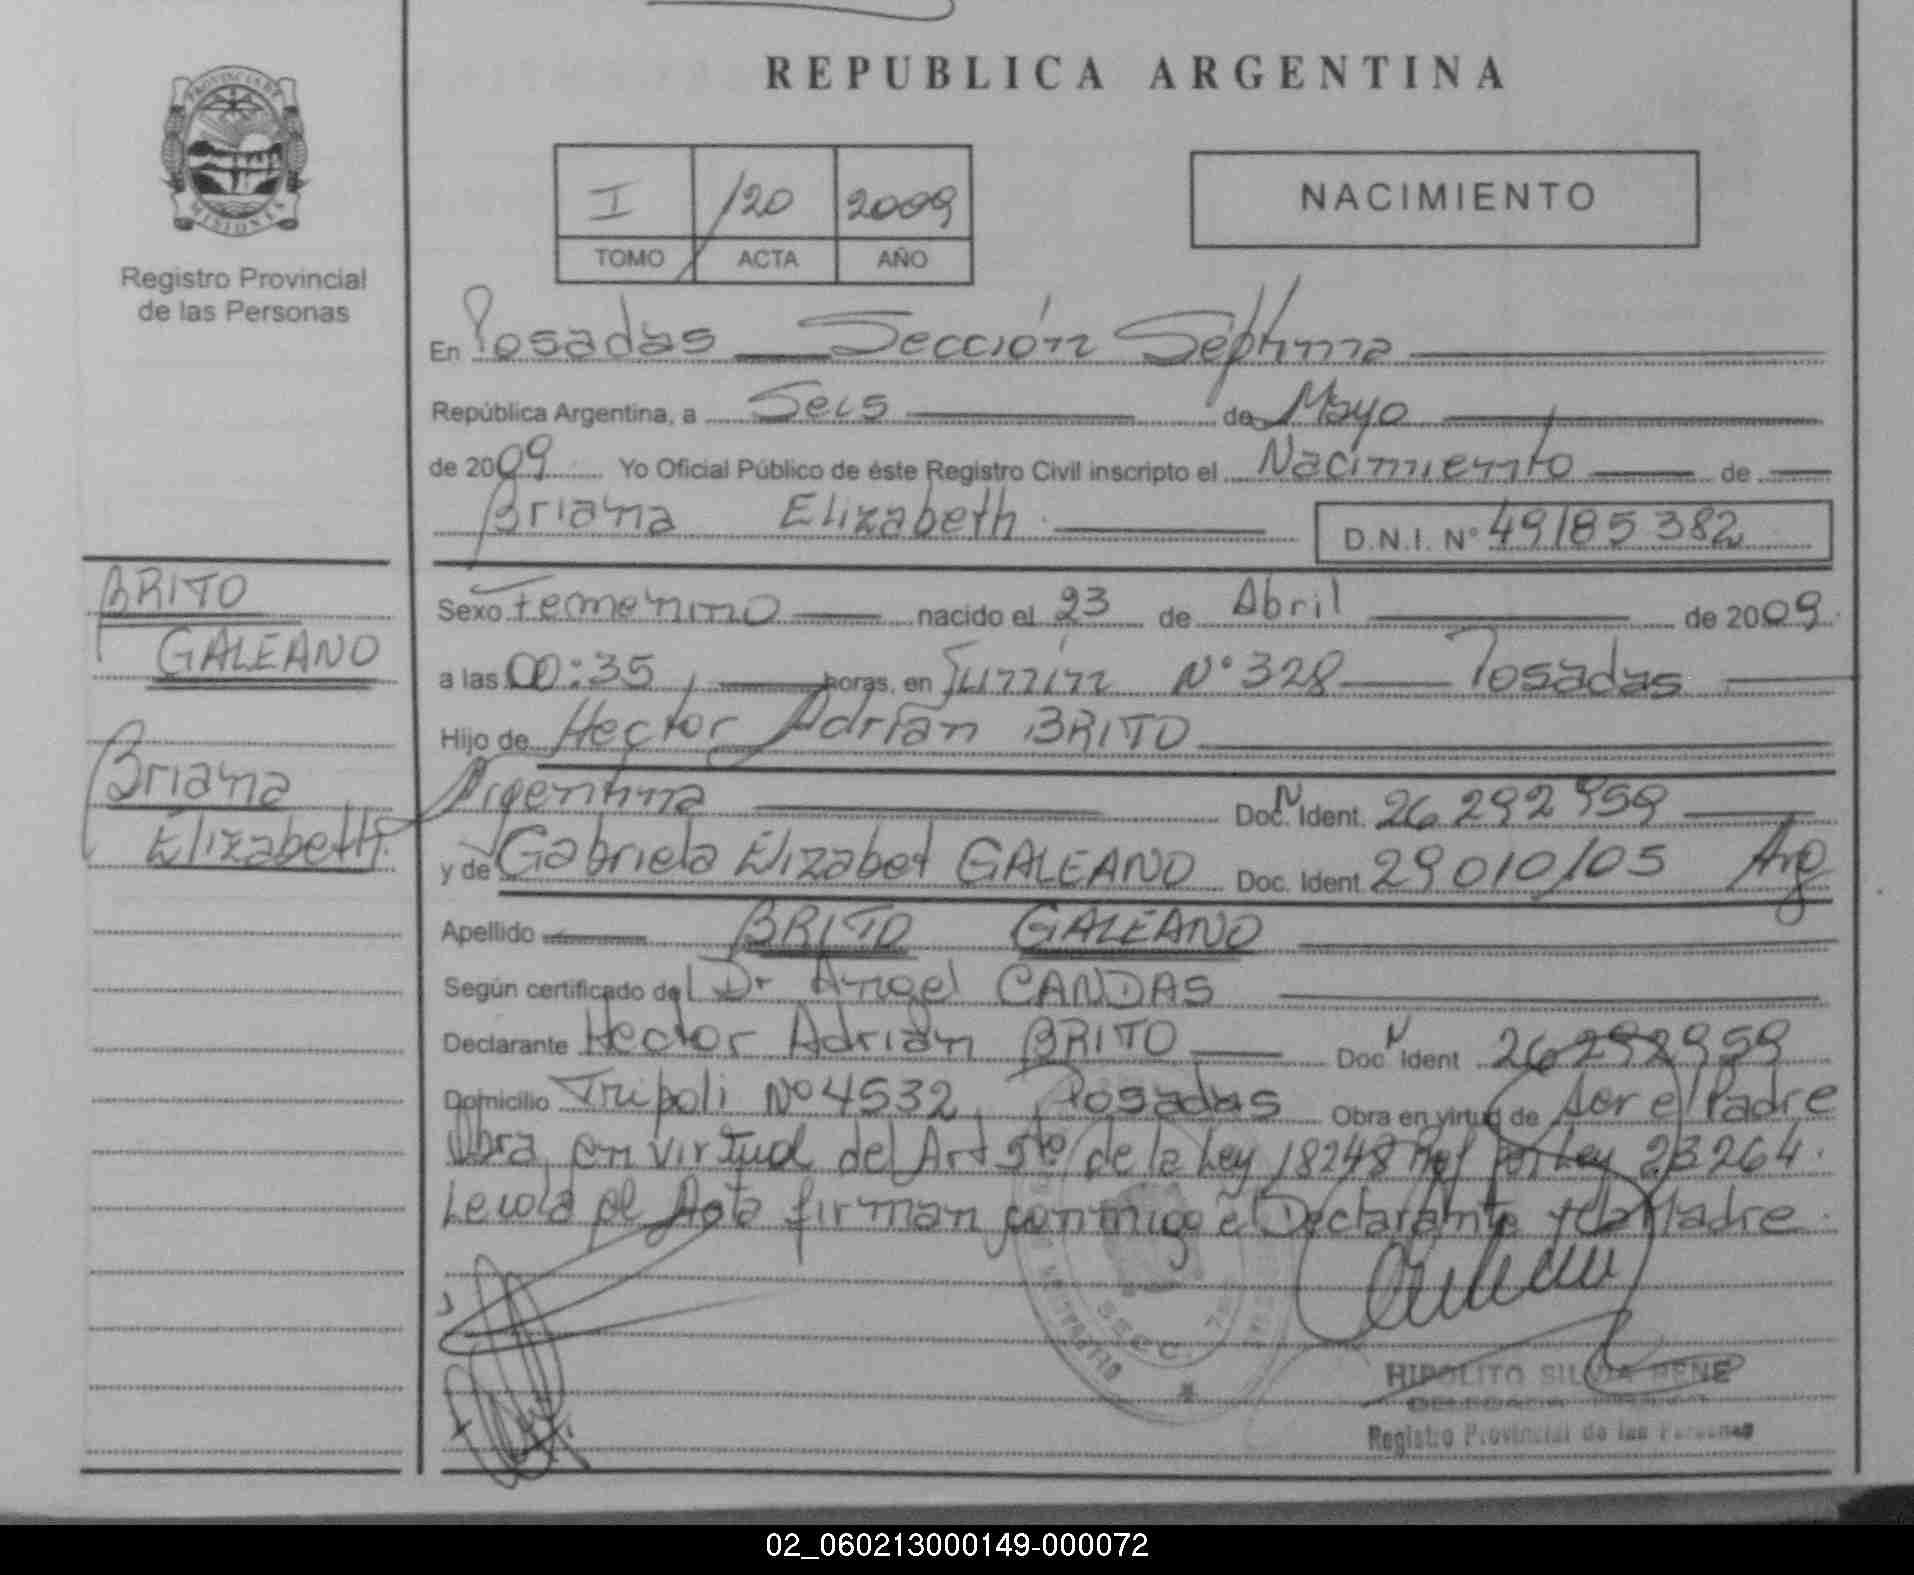 REPUBLICA ARGENTINA
PROVINCIA DE
MISIONES
Registro Provincial
de las Personas
I /20 2009
TOMO ACTA AÑO
NACIMIENTO
En Posadas Sección Séptima
República Argentina, a Seis de Mayo
de 2009 Yo Oficial Público de éste Registro Civil inscripto el Nacimiento de
Briana Elizabeth D.N.I. N° 49185382
BRITO
GALEANO
Briana
Elizabeth
Sexo Femenino nacido el 23 de Abril de 2009
a las 00:35 horas, en Junín N° 328 Posadas
Hijo de Hector Adrián BRITO
Argentina Doc. N Ident. 26 292 959
y de Gabriela Elizabet GALEANO Doc. Ident 29 010 105 Arg
Apellido BRITO GALEANO
Según certificado del Dr Angel CANDAS
Declarante Hector Adrián BRITO Doc N Ident 26 292 959
Domicilio Tripoli N° 4532 Posadas Obra en virtud de ser el Padre
Obra en virtud del Art 5to de la Ley 18248 Ref por Ley 23264.
Leida el Acta firman conmigo el Declarante y la Madre.
SECC 7
HIPOLITO SILVIA RENE
Registro Provincial de las Personas
02_060213000149-000072